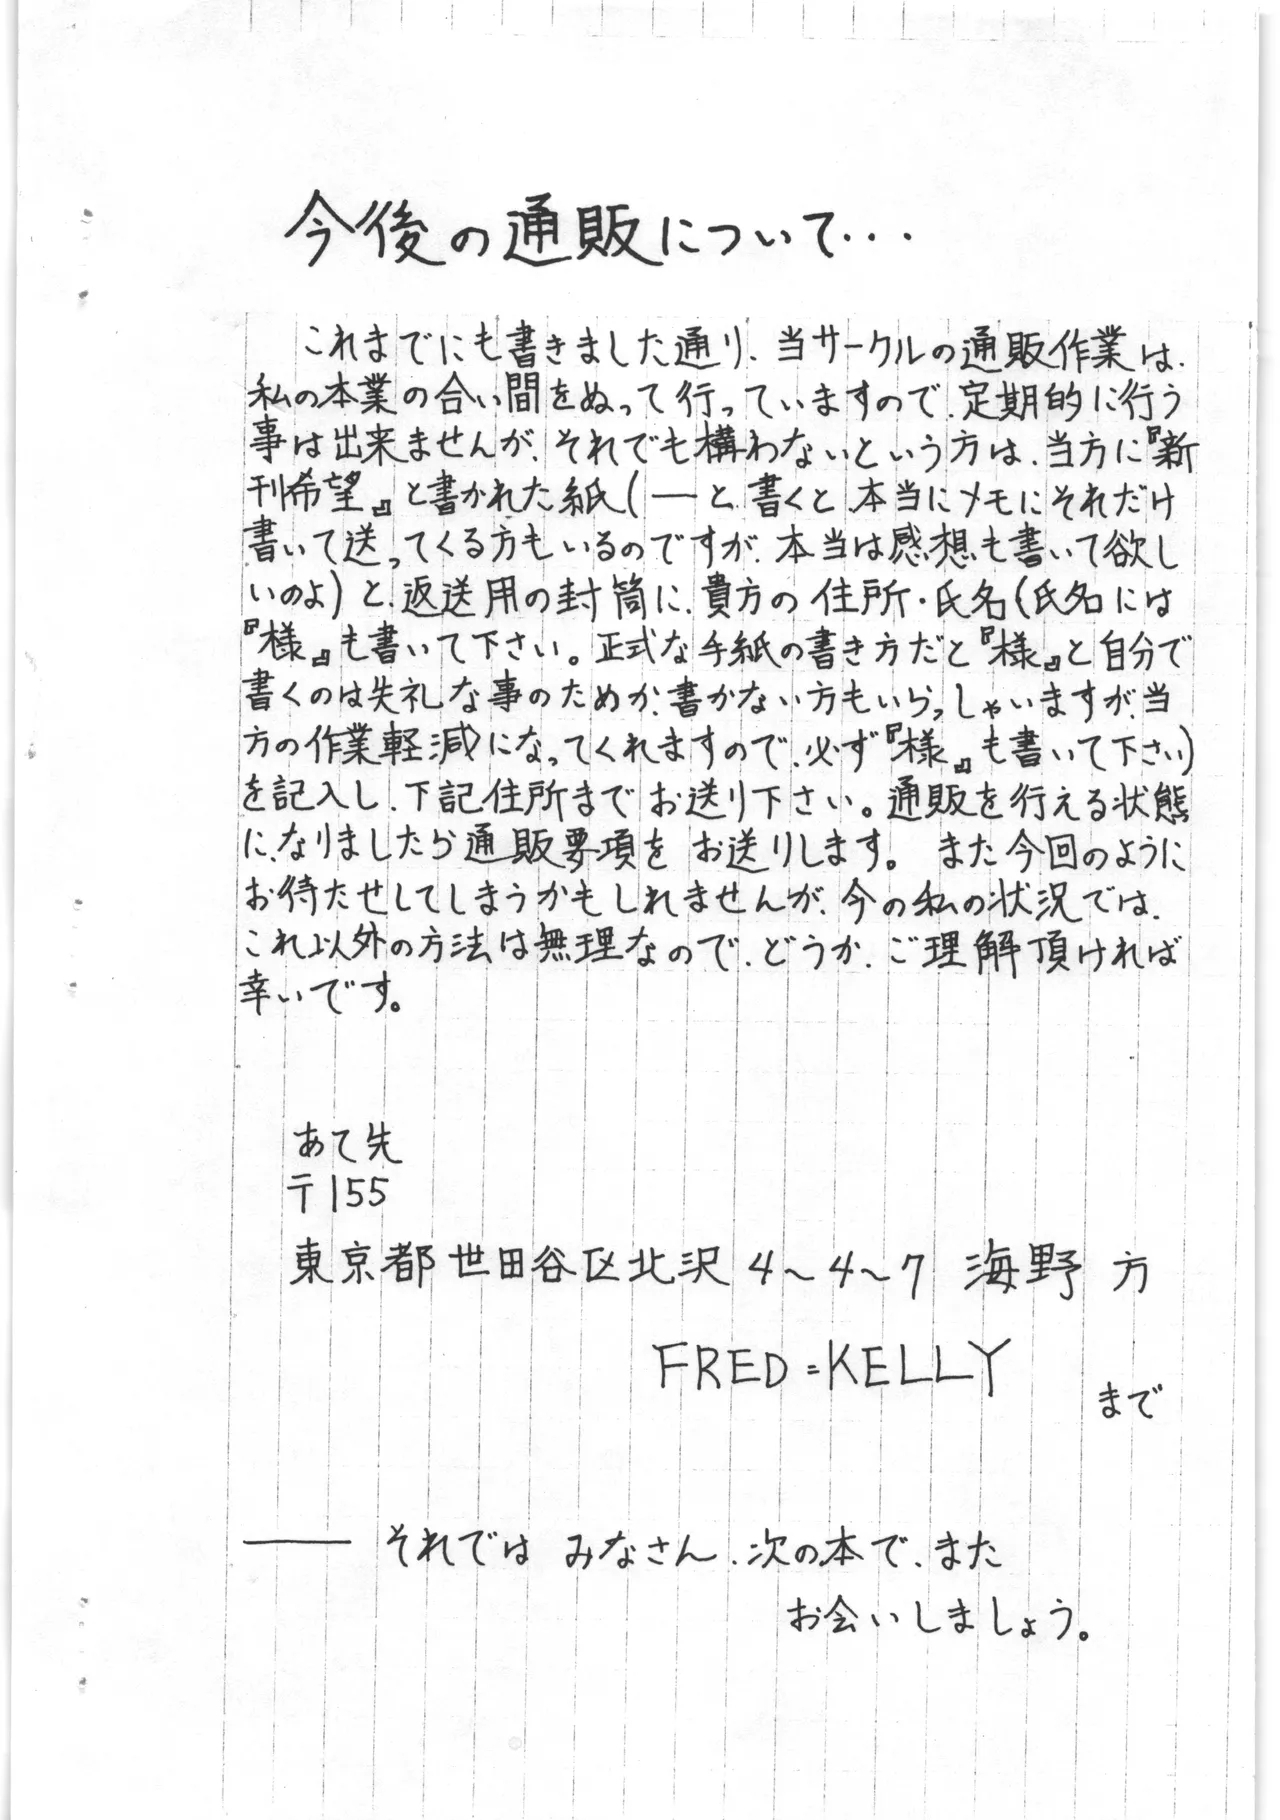 今後の通販について・・・
これまでにも書きました通り、当サークルの通販作業は、
私の本業の合い間をぬって行っていますので、定期的に行う
事は出来ませんが、それでも構わないという方は、当方に『新
刊希望』と書かれた紙(──と、書くと、本当にメモにそれだけ
書いて送ってくる方もいるのですが、本当は感想も書いて欲し
いのよ)と、返送用の封筒に、貴方の住所・氏名(氏名には
『様』も書いて下さい。正式な手紙の書き方だと『様』と自分で
書くのは失礼な事のためか、書かない方もいらっしゃいますが、当
方の作業軽減になってくれますので、必ず『様』も書いて下さい)
を記入し、下記住所までお送り下さい。通販を行える状態
に、なりましたら通販要項をお送りします。また今回のように
お待たせしてしまうかもしれませんが、今の私の状況では、
これ以外の方法は無理なので、どうか、ご理解頂ければ
幸いです。
あて先
〒155
東京都世田谷区北沢4~4~7 海野 方
FRED=KELLY
まで
── それでは みなさん、次の本で、また
お会いしましょう。